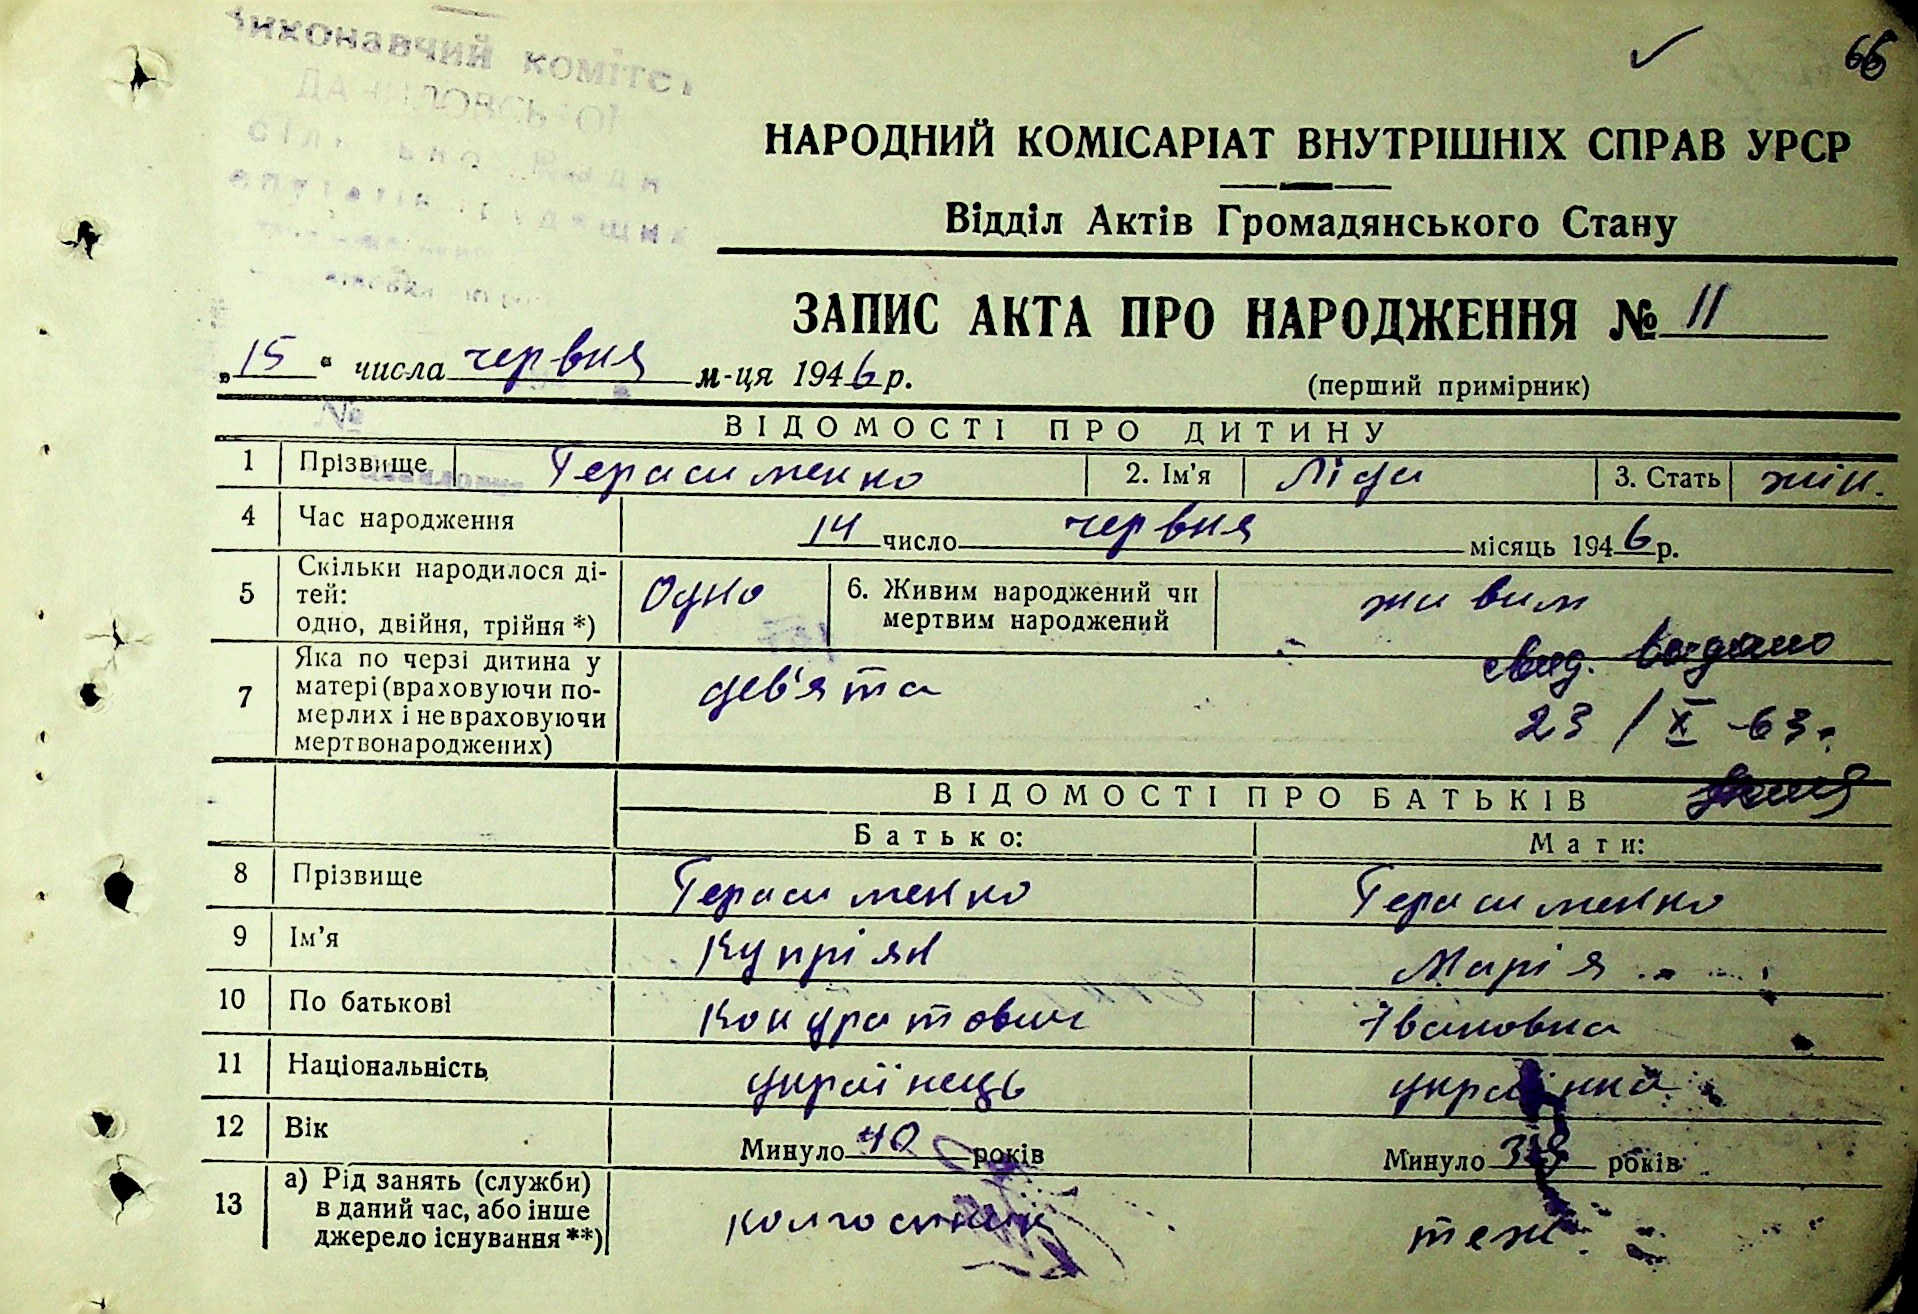 виконавчий комітет
ДАНИЛОВСЬКОЇ
66
НАРОДНИЙ КОМІСАРІАТ ВНУТРІШНІХ СПРАВ УРСР
Відділ Актів Громадянського Стану
ЗАПИС АКТА ПРО НАРОДЖЕННЯ № 11
„15" числа червня м-ця 1946 р.
(перший примірник)
№
ВІДОМОСТІ ПРО ДИТИНУ
1 Прізвище Герасименко 2. Ім'я Ліда 3. Стать жін.
4 Час народження 14 число червня місяць 1946 р.
5 Скільки народилося ді-
тей:
одно, двійня, трійня *) Одно 6. Живим народжений чи
мертвим народжений живим
7 Яка по черзі дитина у
матері (враховуючи по-
мерлих і не враховуючи
мертвонароджених) дев'ята
свид. выдано
23 / X -63 г.
ВІДОМОСТІ ПРО БАТЬКІВ
Батько: Мати:
8 Прізвище Герасименко Герасименко
9 Ім'я Купріян Марія
10 По батькові Кондратович Івановна
11 Національність українець українка
12 Вік Минуло 40 років Минуло 38 років
13 а) Рід занять (служби)
в даний час, або інше
джерело існування **) колгоспник теж